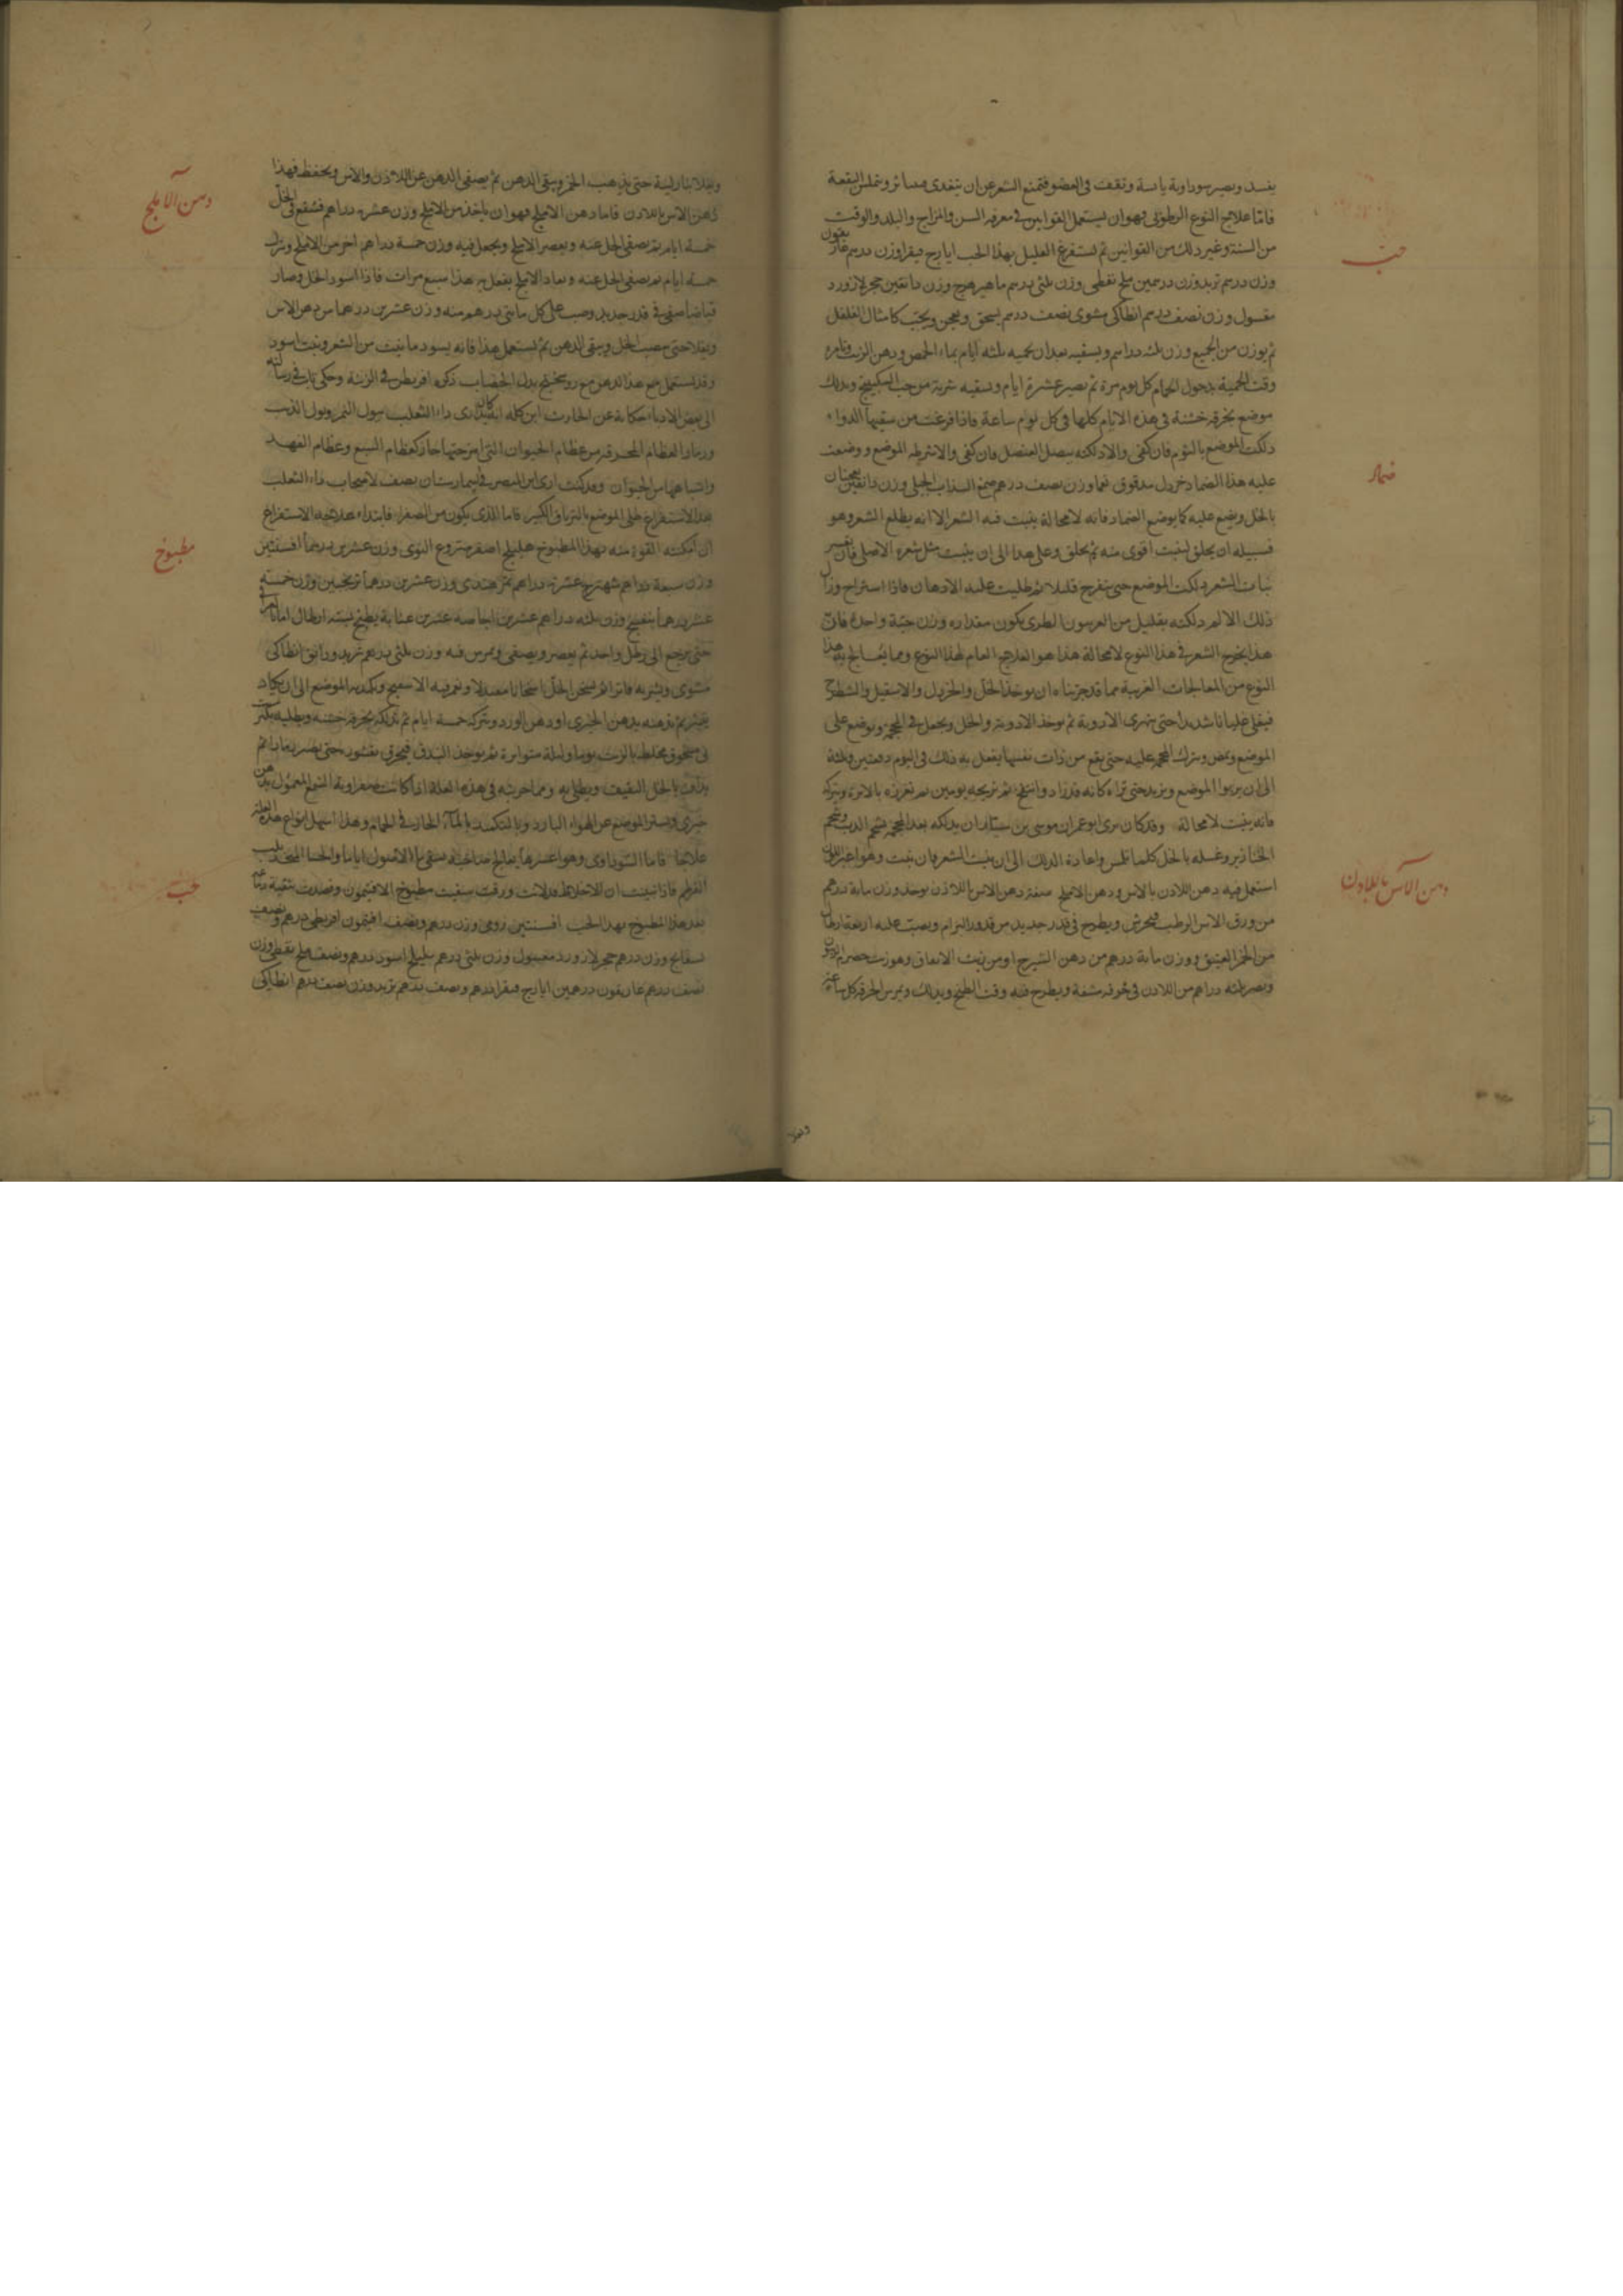 يفسد ويصير سوداوية يابسة وتقف في العضو فتمنع الشعر عن ان يتغدى منها وتملس البقعة
فاما علاج النوع الرطوبي فهو ان يستعمل القوانين في معرفة السن والمزاج والبلد والوقت
من السنة وغير ذلك من القوانين ثم تستفرغ العليل بهذا الحب ايارج فيقرا وزن درهم غاريقون
حب
وزن درهم تربد وزن درهمين ملح نفطي وزن ثلثي درهم ماهيزهرج وزن دانقين حجر لازورد
مغسول وزن نصف درهم انطاكي مشوى نصف درهم يسحق ويعجن ويحبب كامثال الفلفل
ثم يوزن من الجميع وزن ثلثه دراهم ويسقيه بعد ان تحميه ثلثه ايام بماء الحمص ودهن الزيت وتامره
وقت الحمية بدخول الحمام كل يوم مرة ثم تصير عشرة ايام وتسقيه شربة من حب السكبينج وتدلك
موضع بخرقه خشنة في هذه الايام كلها في كل يوم ساعة فاذا فرغت من سقيها الدواء
دلكت الموضع بالثوم فان كفى والا دلكته ببصل العنصل فان كفى والا شرطه الموضع ووضعت
ضماد
عليه هذا الضماد خردل مدقوق وزن نصف درهم صمغ السذاب الجبلي وزن دانقين يعجنان
بالخل ويضع عليه كما يوضع الضماد فانه لا محالة ينبت فيه الشعر الا انه يطلع الشعر وهو
فسبيله ان يحلق لينبت اقوى منه ثم يحلق وعلى هذا الى ان ينبت مثل شعره الاصلي فان
نبات الشعر دلكت الموضع حتى يتقرح قليلا ثم طليت عليه الادهان فاذا استراح وزال
ذلك الالم دلكته بقليل من الفربيون الطرى يكون مقداره وزن حبة واحدة فان
هذا يخرج الشعر في هذا النوع لا محالة هذا هو العلاج العام لهذا النوع ومما يعالج به هذا
النوع من المعالجات الغريبة مما قد جربناه ان يوخذ الخل والخردل والاشقيل والشيطرج
فيغلى غليانا شديدا حتى تهرى الادوية ثم يوخذ الادوية والخل ويجعل في المحجمة وتوضع على
الموضع ويمص ويترك المحجمه عليه حتى يقع من ذات نفسها يفعل به ذلك في اليوم دفعتين وثلثة
الى ان يربوا الموضع ويزيد حتى تراه كانه قد زاد وانتفخ ثم تريحه يومين ثم تغرزه بالابرة وتتركه
فانه ينبت لا محالة وقد كان يرى ابو عمران موسى بن سيار ان يدلكه بعد المحجمة بشحم الدب وشحم
الخنازير وغسله بالخل كلما تملس واعادة الدلك الى ان ينبت الشعر فان نبت وهو اغبر اللون
استعمل فيه دهن اللادن بالاس ودهن الاملج صفة دهن الاس باللاذن يوخذ وزن ماية درهم
دهن الاس باللادن
من ورق الاس الرطب فيجرش ويطرح في قدر جديد من قدور البرام ويصب عليه اربعة ارطال
من الخمر العتيق ووزن ماية درهم من دهن الشيرج او من زيت الانفاق وهو زيت حصرم الزيتون
ويصر ثلثه دراهم من اللادن في خرقه مشقة ويطرح فيه وقت الطبخ ويدلك ويمرس الخرقة كل ساعة
ويغلا بنار لينة حتى يذهب الخمر ويبقى الدهن ثم يصفى الدهن عن اللاذن والاس ويحفظ فهذا
دهن الاملج
دهن الاس باللادن فاما دهن الاملج فهو ان ياخذ من الاملج وزن عشرة دراهم فينقع في الخل
خمسة ايام ثم يصفى الخل عنه ويعصر الاملج ويجعل فيه وزن خمسة دراهم اخر من الاملج ويترك
خمسة ايام ثم يصفى الخل عنه ويعاد الاملج يفعل به هذا سبع مرات فاذا اسود الخل وصار
في قدر جديد وصب على كل مايتي درهم منه وزن عشرين درهما من دهن الاس
ويغلا حتى الخل ويبقى الدهن ثم يستعمل هذا فانه يسود ما ينبت من الشعر وينبت اسود
وقد يستعمل مع هذا الدهن بدل الخضاب ذكره اقريطن في الزينة وحكى ثابت في رسالته
الى بعض الادباء حكاية عن الحارث ابن كلده داء الثعلب ببول النمر وبول الذئب
ورماد العظام المحرقه من عظام الحيوان التي امزجتها حارة كعظام السبع وعظام الفهد
واشباهها من الحيوان وقد كنت ارى في البيمارستان يصف لاصحاب داء الثعلب
بعد الاستفراغ طلى الموضع بالترياق الكبير فاما الذي يكون من الصفرا فابتداء علاجه الاستفراغ
ان امكنته القوة منه بهذا المطبوخ هليلج اصفر منزوع النوى وزن عشرين درهما افسنتين
مطبوخ
وزن سبعة دراهم شهترج عشرة دراهم تمر هندي وزن عشرين درهما ترنجبين وزن خمسة
عشر درهما بنفسج وزن ثلثه دراهم عشرين اجاصه عشرين عنابة يطبخ بستة ارطال
حتى يرجع الى رطل واحد ثم يعصر ويصفى ويمرس فيه وزن ثلثي درهم تربد ودانق انطاكي
مشوى ويشربه فاترا ثم يسخن الخل اسخانا معتدلا وتغمر فيه الاسفنج وتكمد به الموضع الى ان يكاد
ثم تمرخه بدهن الخيرى او دهن الورد وتتركه خمسة ايام ثم تدلكه بخرقه خشنة وتطليه
مخلط بالزيت يوما وليلة متواترة ثم يوخذ البندق فيحرق بقشوره حتى يصير رمادا ثم
يداف بالخل الثقيف ويطلى به ومما جربته في هذه العلة اذا كانت صفراوية الشمع المعمول بدهن
خيرى ويستر الموضع عن الهواء البارد وبالتكميد بالماء الحار في الحمام وهذا اسهل انواع هذه العلة
علاجا فاما السوداوى وهو اعسرها يعالج صاحبه بسقى ماء الاصول اياما والحسا المتخذ بلب
القرطم فاذا تبينت ان الاخلاط قد لانت ورقت سقيت مطبوخ الافتيمون وقصدت تنقية دماغه
حب
بعد هذا المطبوخ بهذا الحب افسنتين رومى وزن درهم ونصف افتيمون اقريطي درهم ونصف
بسفايج وزن درهم حجر لازورد مغسول وزن ثلثي درهم هليلج اسود درهم ونصف ملح نفطى وزن
نصف درهم غاريقون درهمين ايارج فيقرا درهم ونصف درهم تربد وزن نصف درهم انطاكي